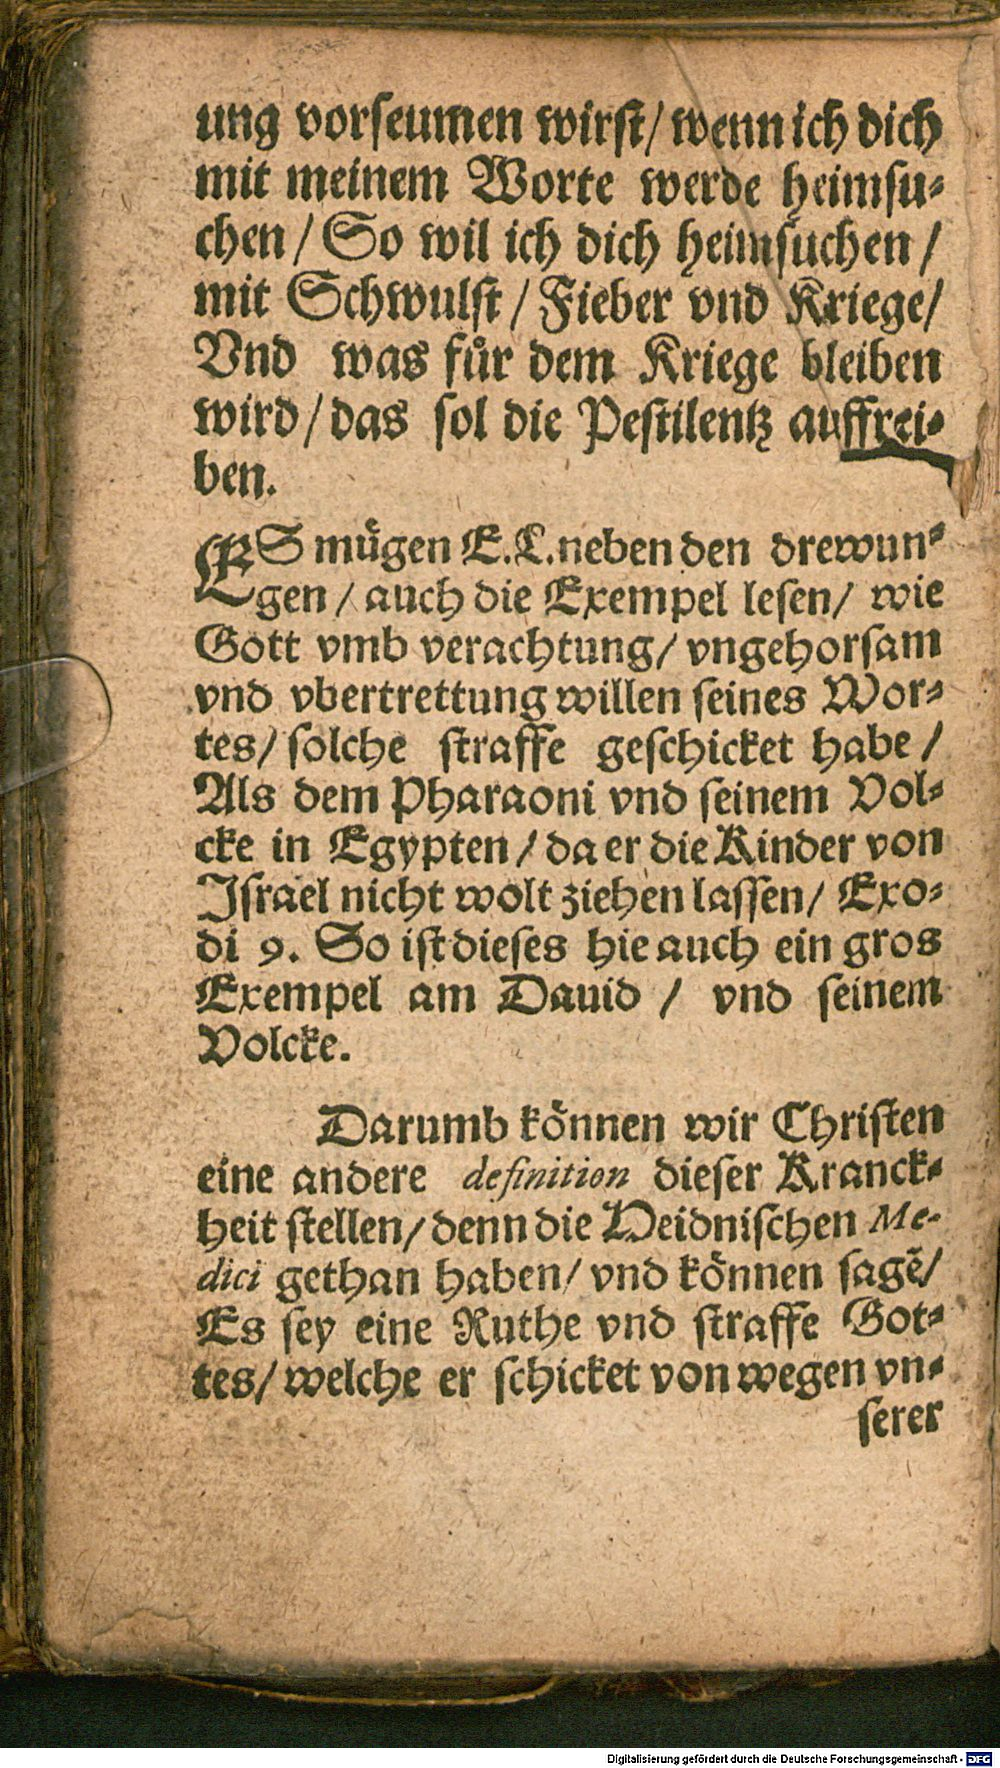 ung vorseumen wirst/ wenn ich dich
mit meinem Worte werde heimsu-
chen / So wil ich dich heimsuchen /
mit Schwulst / Fieber vnd Kriege/
Vnd was fůr dem Kriege bleiben
wird/ das sol die Pestilentz auffrei-
ben.
ES můgen E. L. neben den drewun-
gen / auch die Exempel lesen/ wie
Gott vmb verachtung/ vngehorsam
vnd vbertrettung willen seines Wor-
tes/ solche straffe geschicket habe /
Als dem Pharaoni vnd seinem Vol-
cke in Egypten / da er die Kinder von
Israel nicht wolt ziehen lassen/ Exo-
di 9. So ist dieses hie auch ein gros
Exempel am Dauid / vnd seinem
Volcke.
Darumb können wir Christen
eine andere definition dieser Kranck-
heit stellen/ denn die Heidnischen Me-
dici gethan haben/ vnd können sagē/
Es sey eine Ruthe vnd straffe Got-
tes/ welche er schicket von wegen vn-
serer
Digitalisierung gefördert durch die Deutsche Forschungsgemeinschaft - DFG